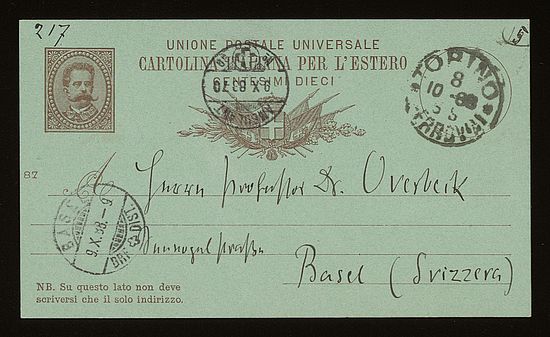 217
15
UNIONE POSTALE UNIVERSALE
CARTOLINA ITALIANA PER L'ESTERO
CENTESIMI DIECI
TORINO
8
10 - 88
5 S
FERROVIA
9. X. 88. 20
87
Herrn Professor Dr. Overbeck
BASEL
9. X. 88. - 9
BRF. DIST
Sennergelstraße
Basel (Svizzera)
NB. Su questo lato non deve
scriversi che il solo indirizzo.